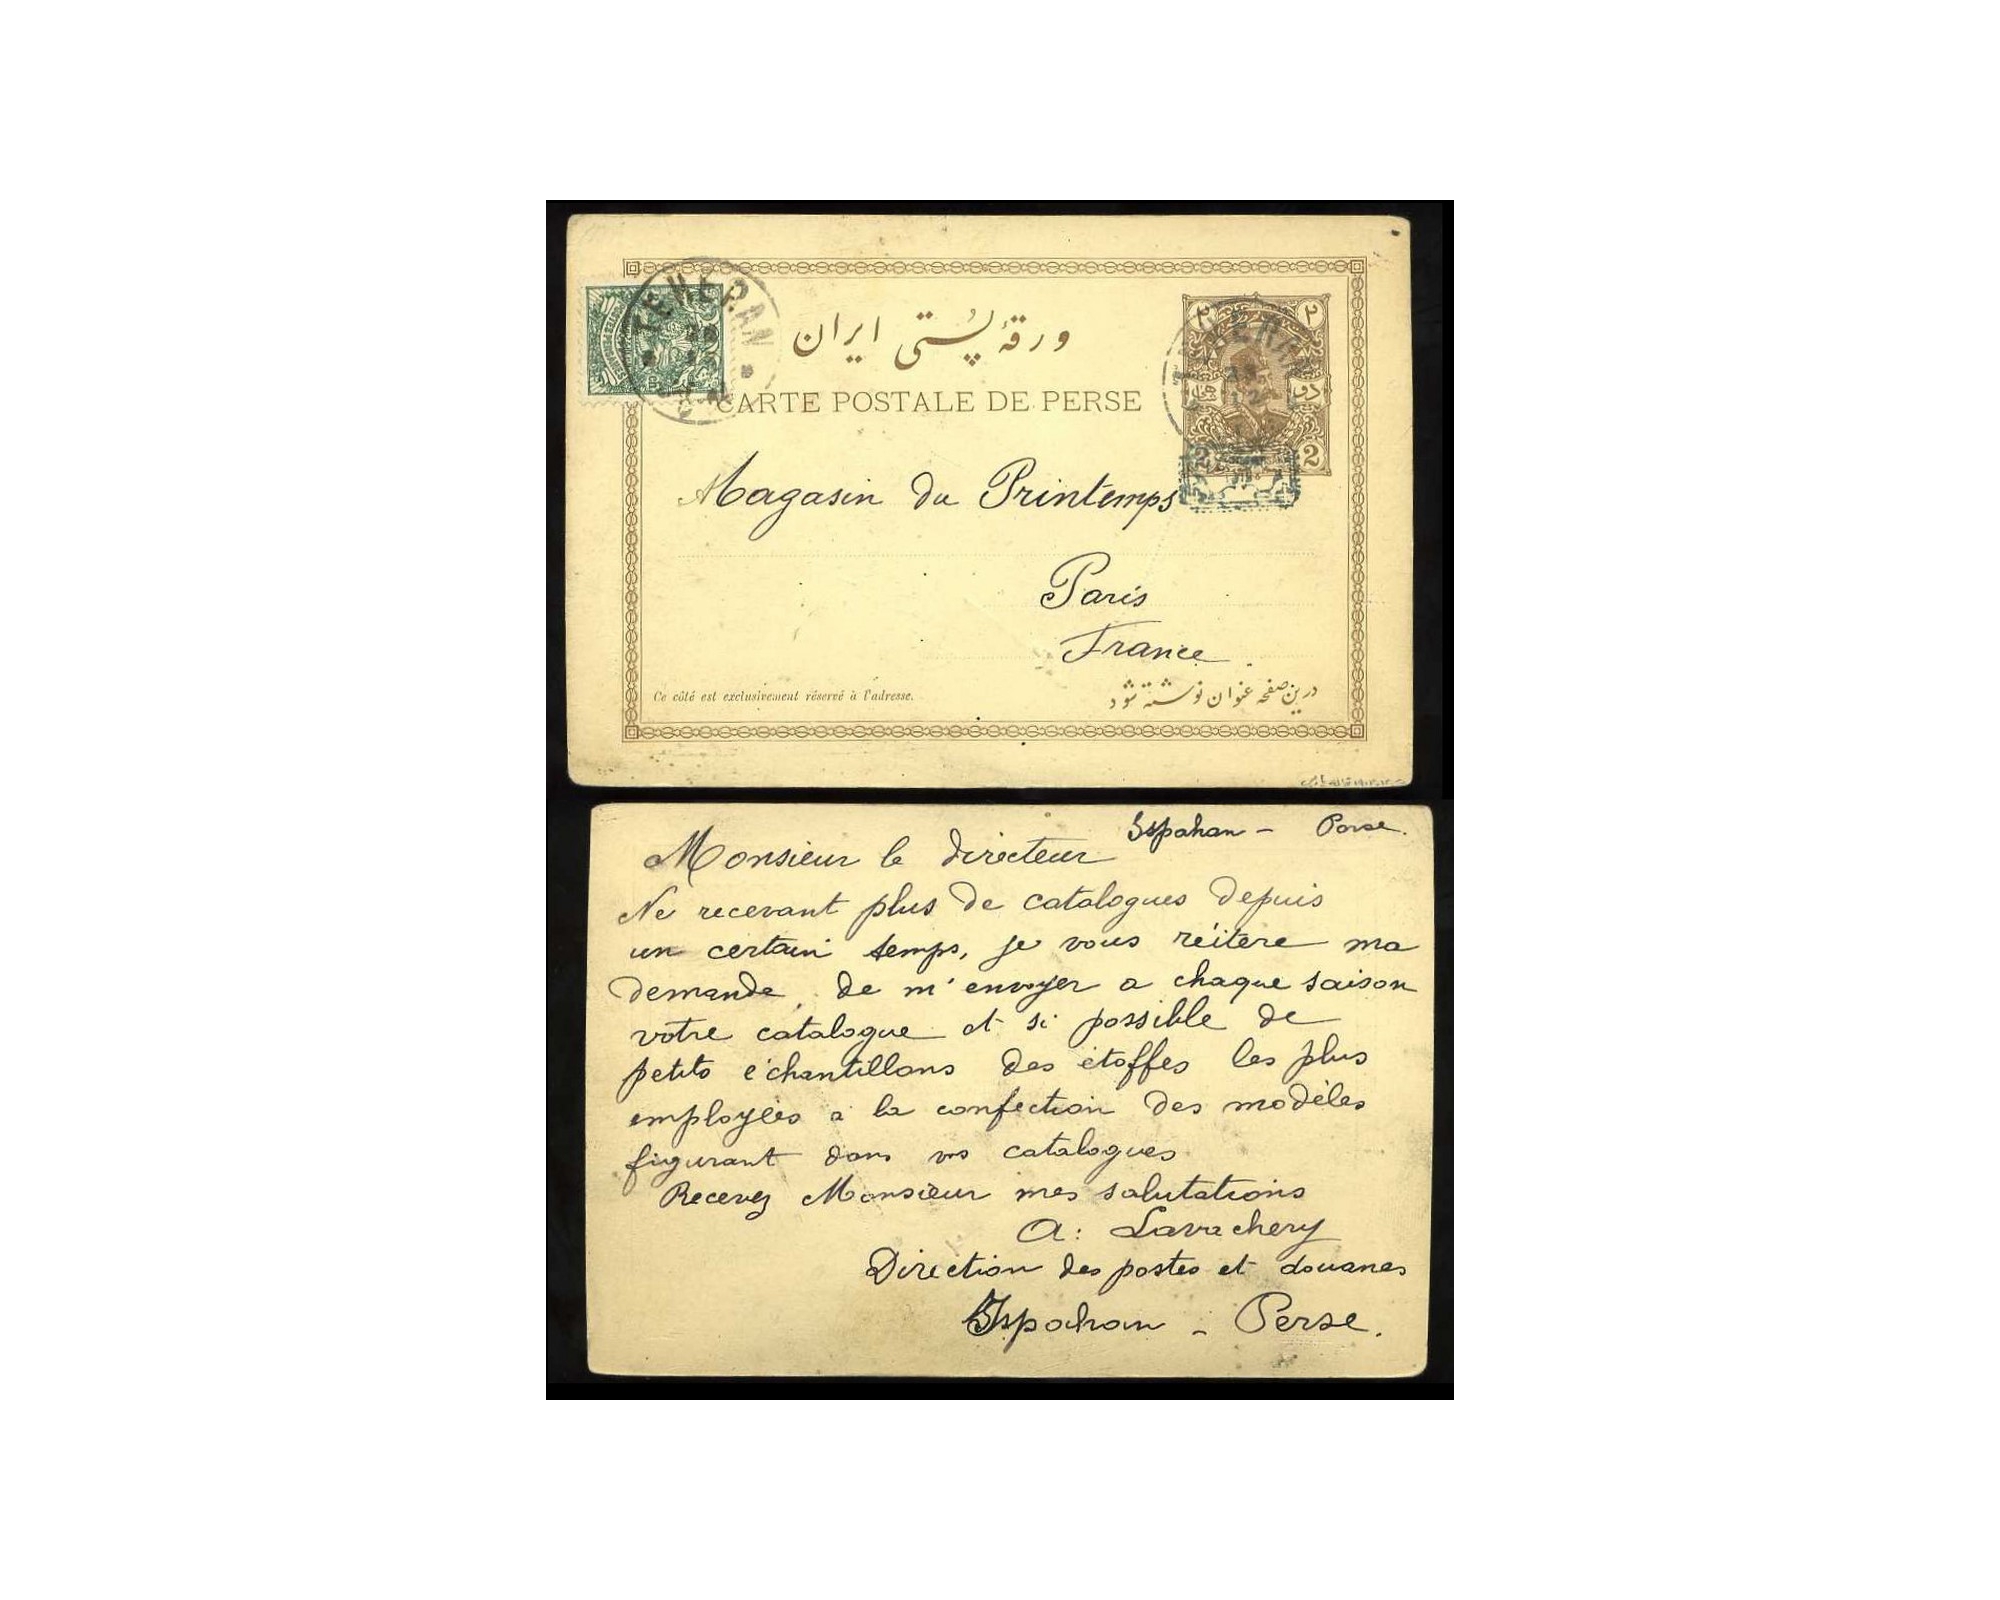 TEHERAN
TEHERAN
۲ ۲
ورقهٔ پُستی ایران
CARTE POSTALE DE PERSE
دو
2 2
Magasin du Printemps
Paris
France
Ce côté est exclusivement réservé à l'adresse.
درین صفحه عنوان نوشته شود
Ispahan - Perse.
Monsieur le directeur
Ne recevant plus de catalogues depuis
un certain temps, je vous réitere ma
demande, de m'envoyer a chaque saison
votre catalogue et si possible de
petits échantillons des étoffes les plus
employées a la confection des modèles
figurant dans vos catalogues
Recevez Monsieur mes salutations
A: Lavachery
Direction des postes et douanes
Ispahan - Perse.